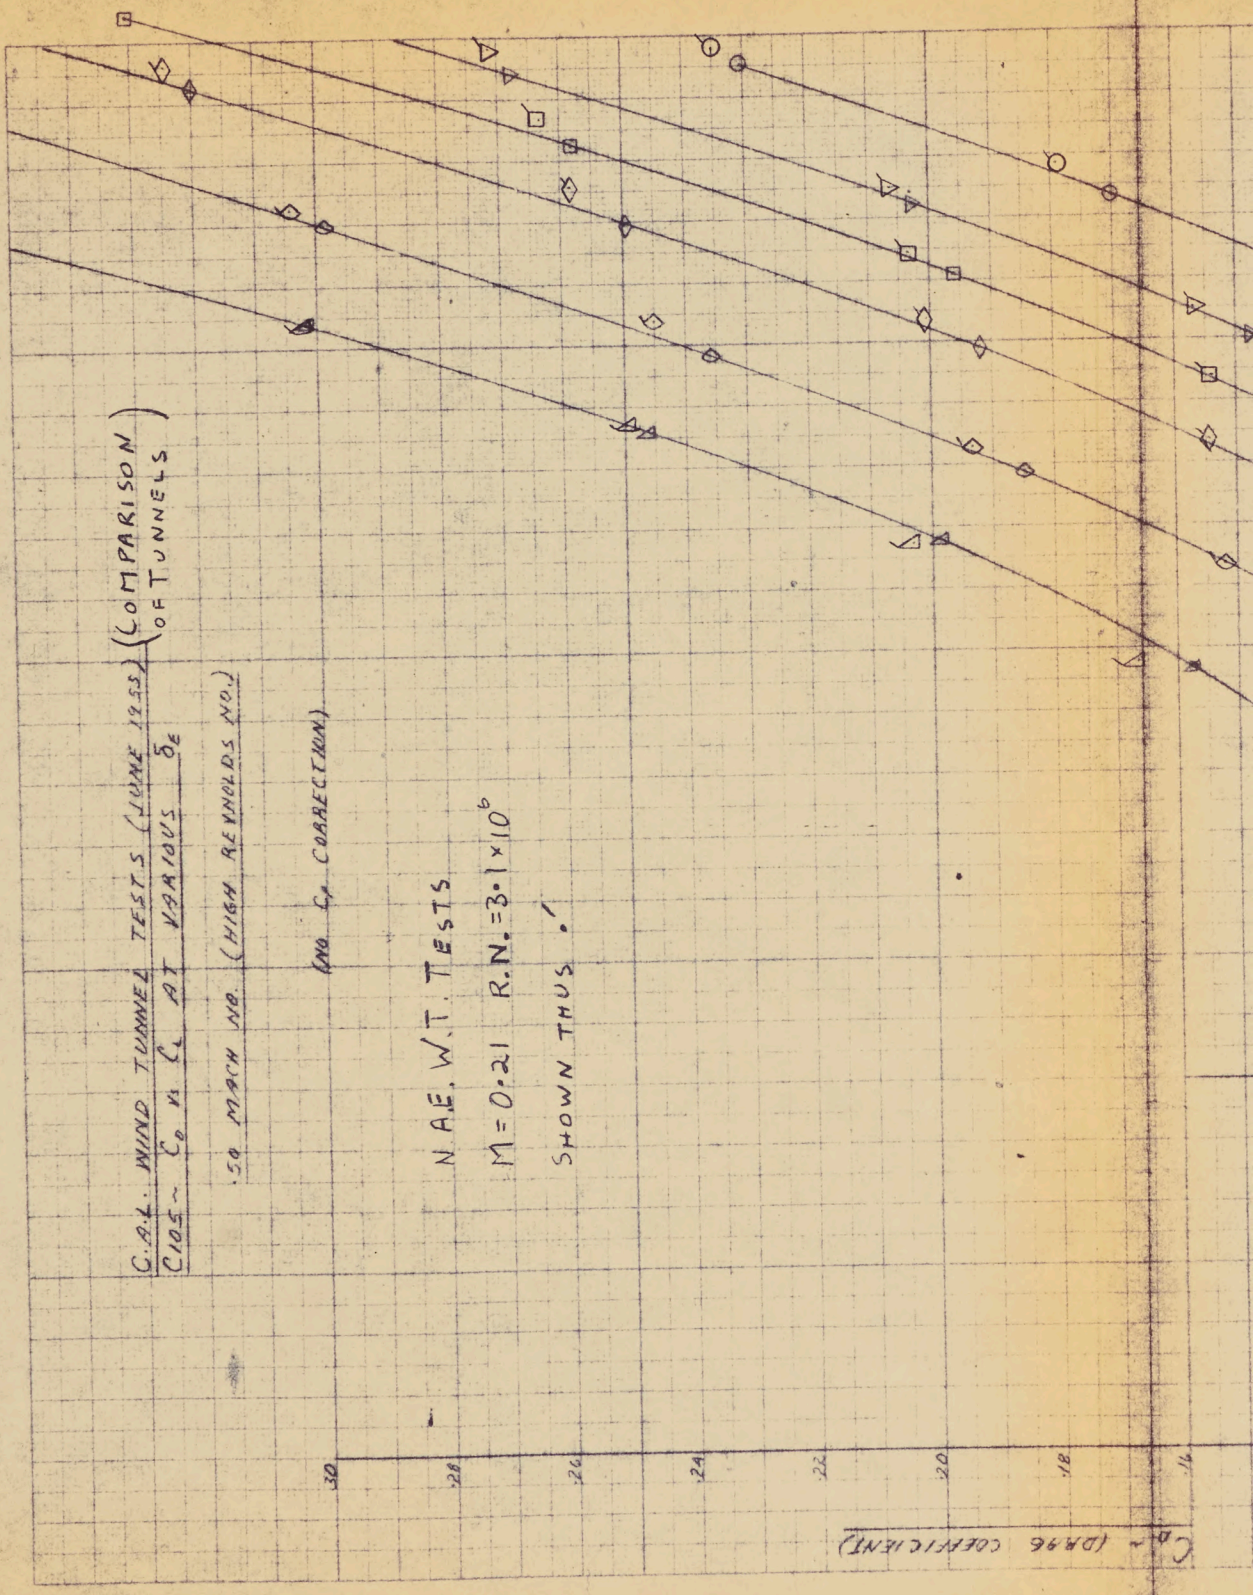 C.A.L. WIND TUNNEL TESTS (JUNE 1955) (COMPARISON OF TUNNELS)
C105 ~ C_D vs C_L AT VARIOUS δ_E
.50 MACH NO. (HIGH REYNOLDS NO.)
CORRECTION)
N.A.E. W.T. TESTS
M=0.21 R.N.=3.1×10⁶
SHOWN THUS
.30
.28
.26
.24
.22
.20
.18
.16
C_D ~ (DRAG COEFFICIENT)